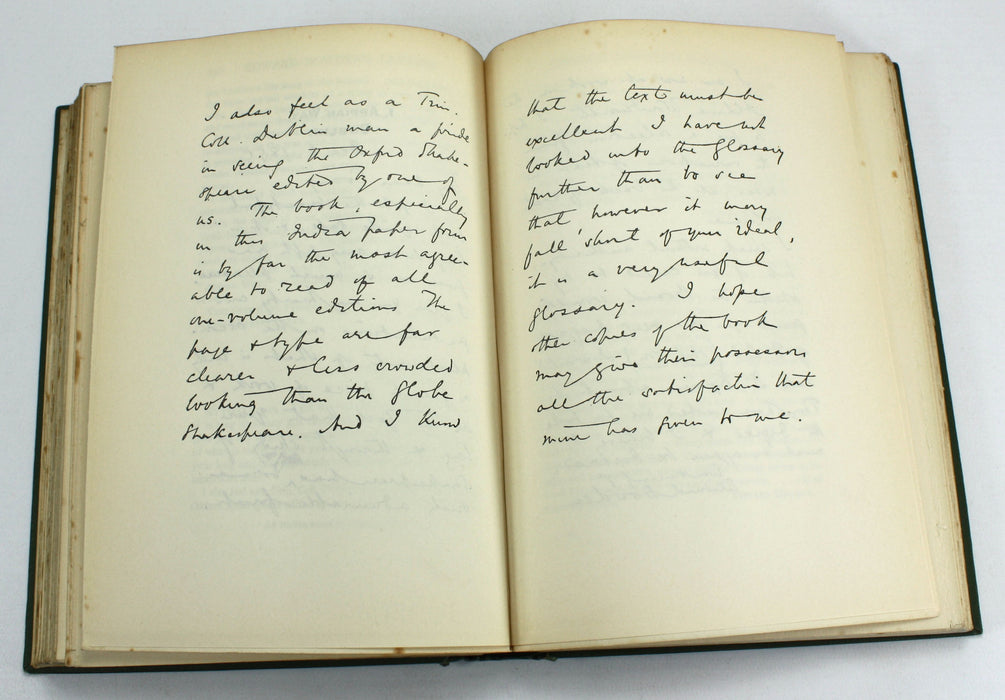 I also feel as a Trin.
Coll. Dublin man a pride
in seeing the Oxford Shake-
speare edited by one of
us. The book, especially
in this India paper form
is by far the most agree-
able to read of all
one-volume editions The
page & type are far
clearer & less crowded
looking than the Globe
Shakespeare. And I know
that the text must be
excellent I have not
looked into the Glossary
further than to see
that however it may
fall short of your ideal,
it is a very useful
glossary. I hope
other copies of the book
may give their possessors
all the satisfaction that
mine has given to me.